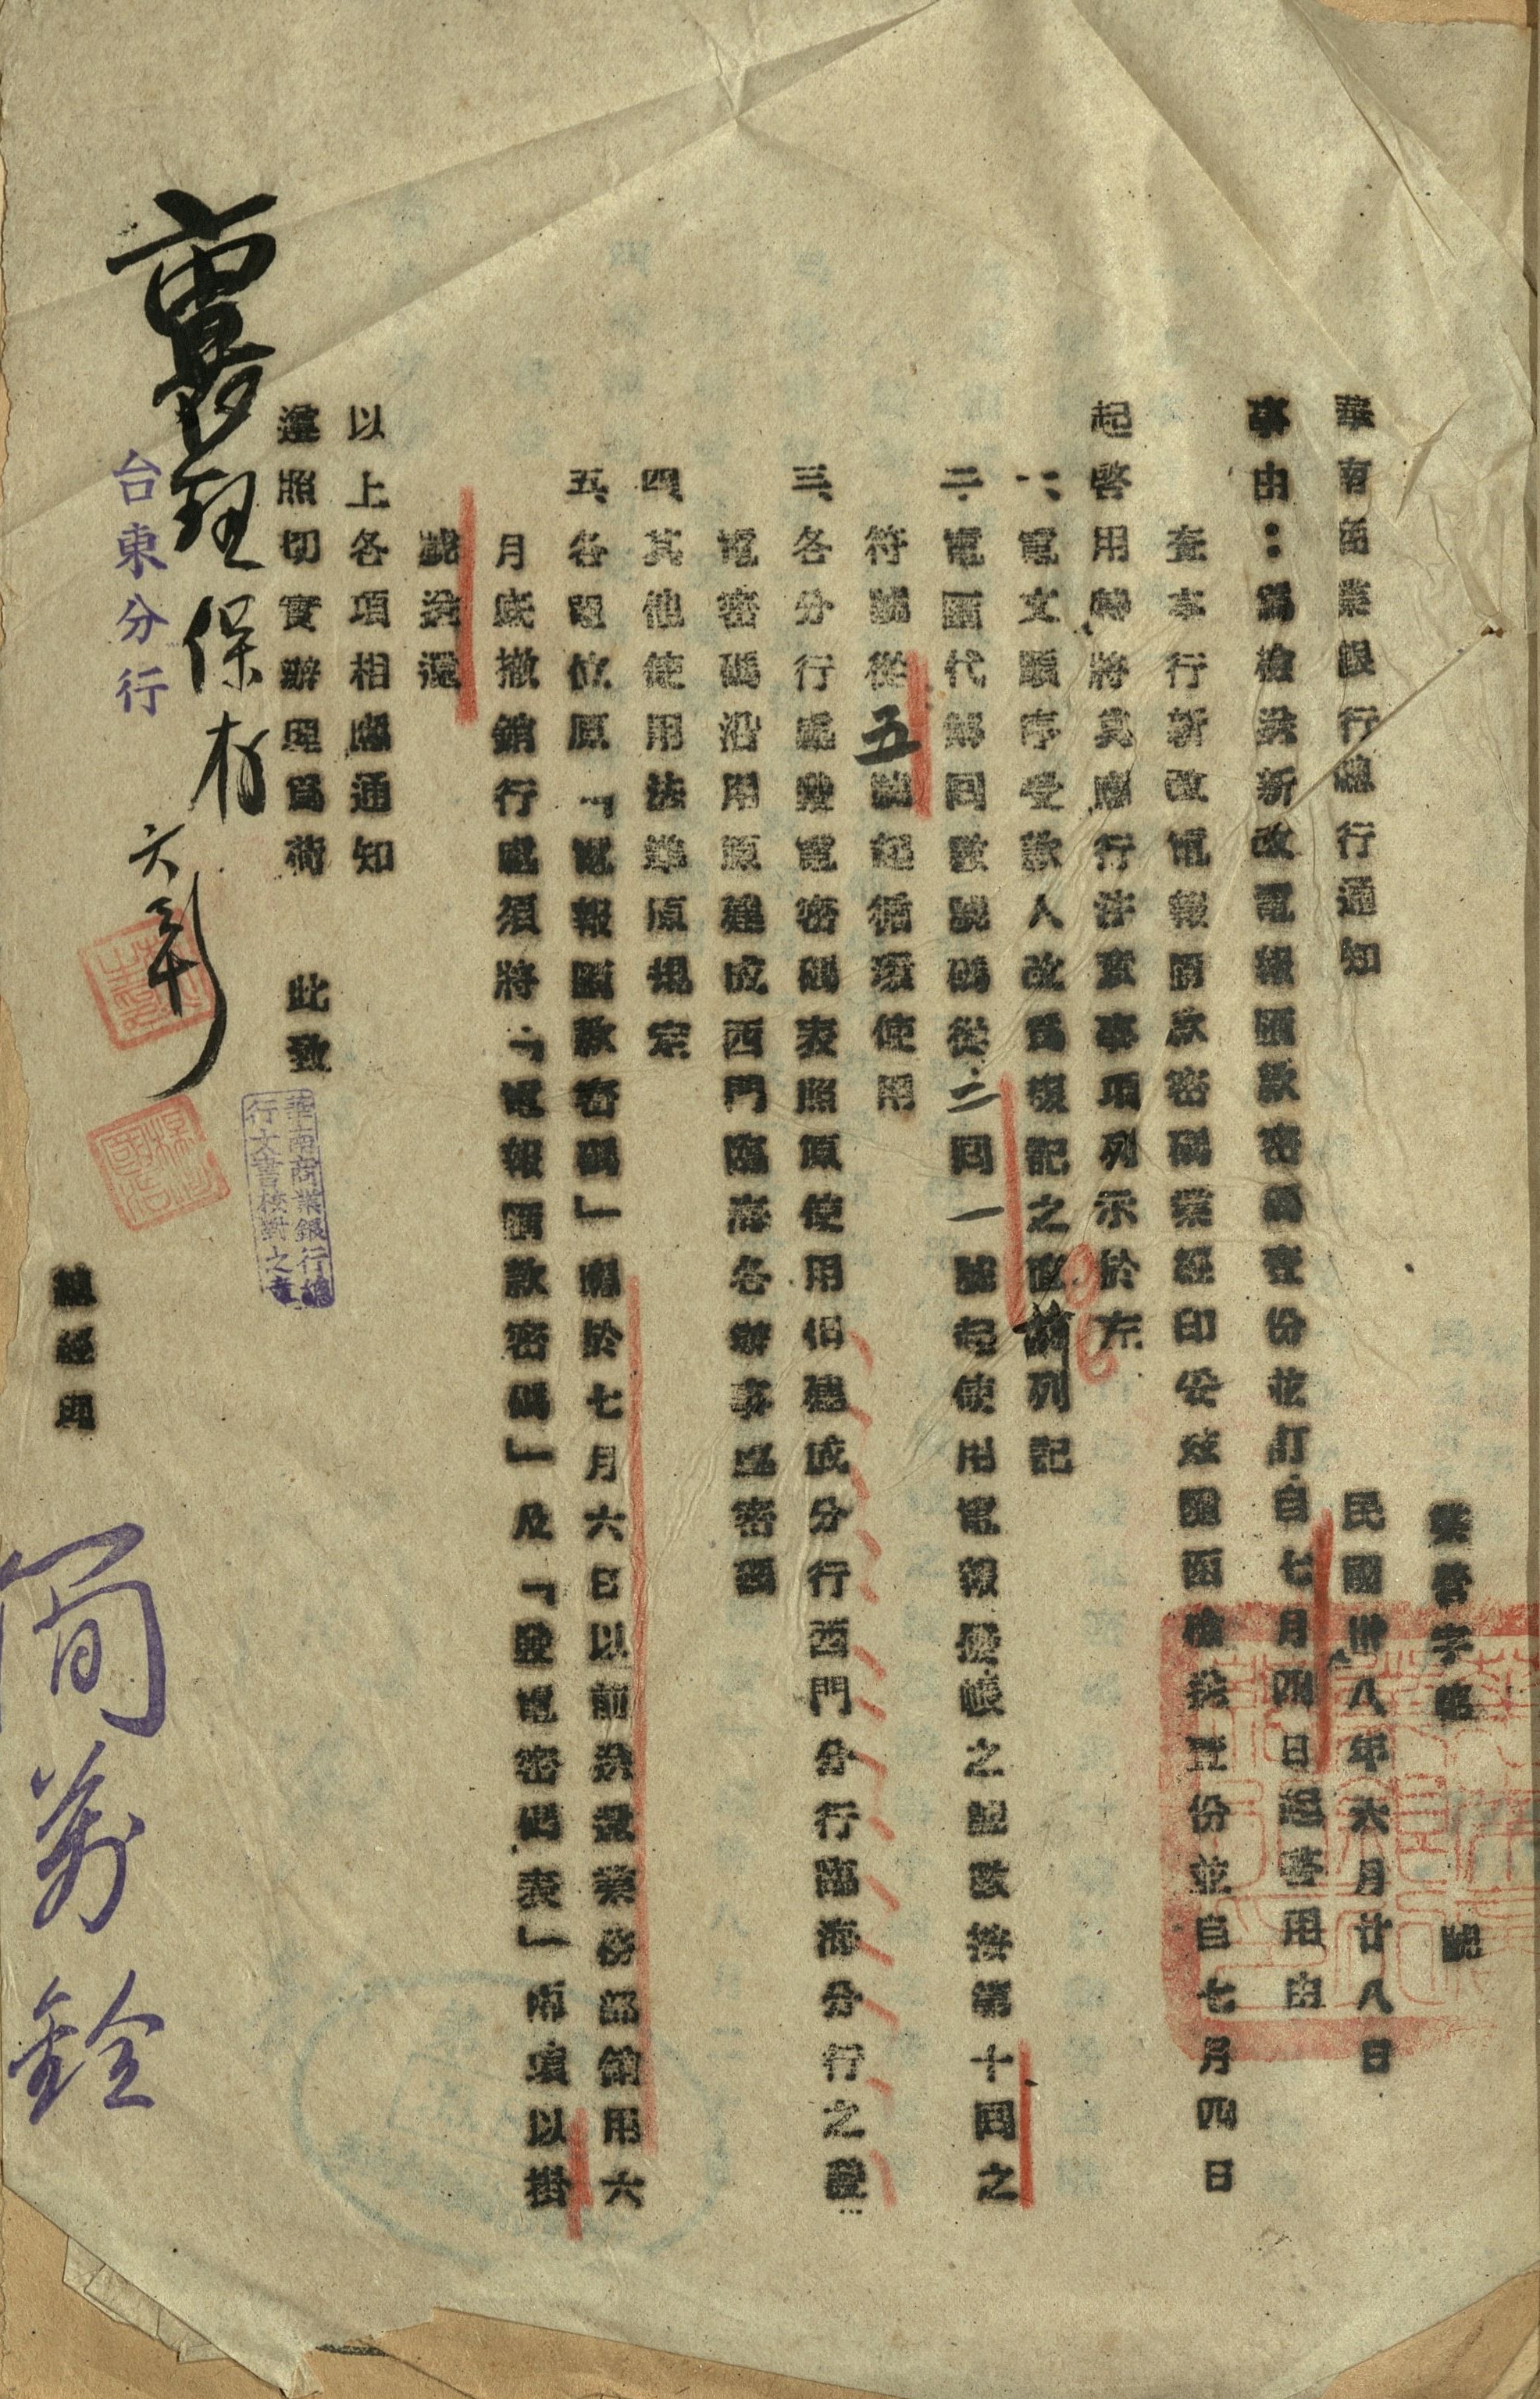 業營字第 號
民國卅八年六月廿八日
華南商業銀行總行通知
事由：為檢發新改電報匯款密碼壹份並訂自七月四日起啓用由
查本行新改電報匯款密碼業經印妥茲隨函檢發壹份並自七月四日
起啓用將其應行注意事項列示於左
一、電文順序受款人改為複記之直前列記
二、電匯代解回數號碼從二回一號起使用電報優帳之記數按第十回之
符號從五號起循環使用
三、各分行處發電密碼表照原使用但建成分行西門分行臨海分行之發
電密碼沿用原建成西門臨海各辦事處密碼
四、其他使用法準原規定
五、各單位原「電報匯款密碼」需於七月六日以前送還業務部備用六
月底撤銷行處須將「電報匯款密碼」及「發電密碼表」兩項以掛
號送還
以上各項相應通知
遵照切實辦理為荷 此致
台東分行
襄理保存
華南商業銀行總
行文書校對之章
總經理
簡萬銓